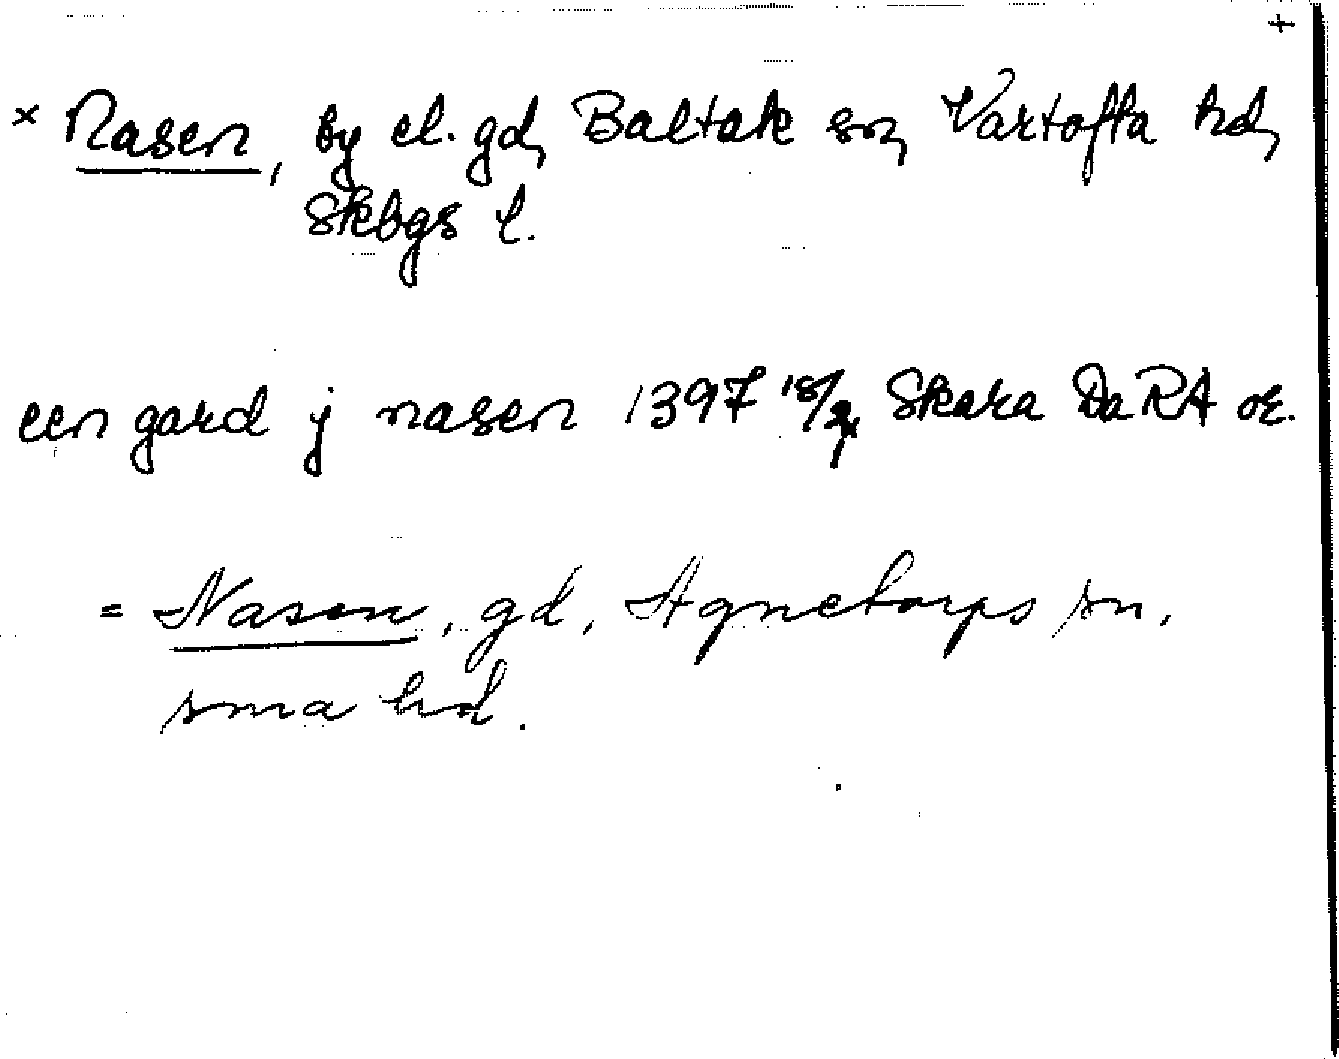 × Nasen, by el. gd, Baltak sn, Vartofta hd,
Skbgs l.
een gard j nasen 1397 18/2, Skara DaRA or.
= Nasen, gd, Agnetorps sn,
sma hd.